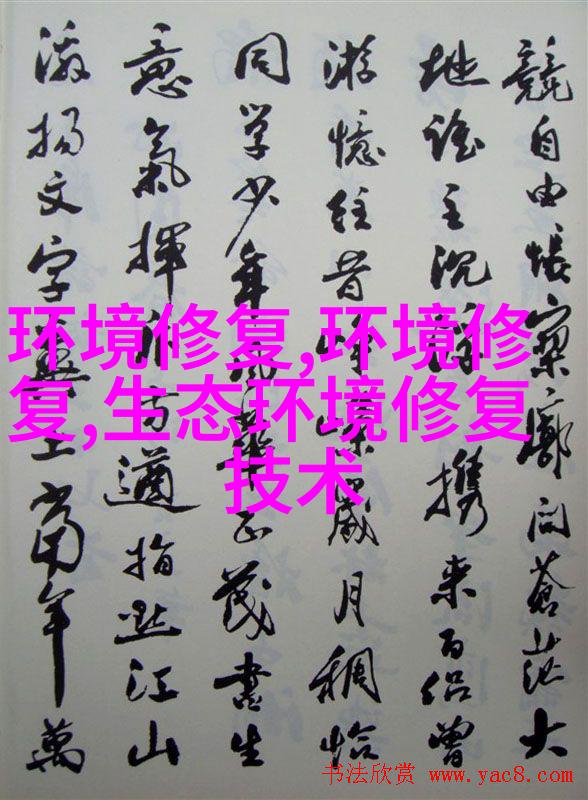 競自由悵寥廓问蒼茫大
地誰主沉浮携来百侣曾
游憶往昔崢嶸歲月稠恰
同学少年風華正茂書生
意氣揮斥方遒指點江山
激揚文字糞土當年萬
环境修复,环境修
复,生态环境修复
技术
书法欣赏 www.yac8.com